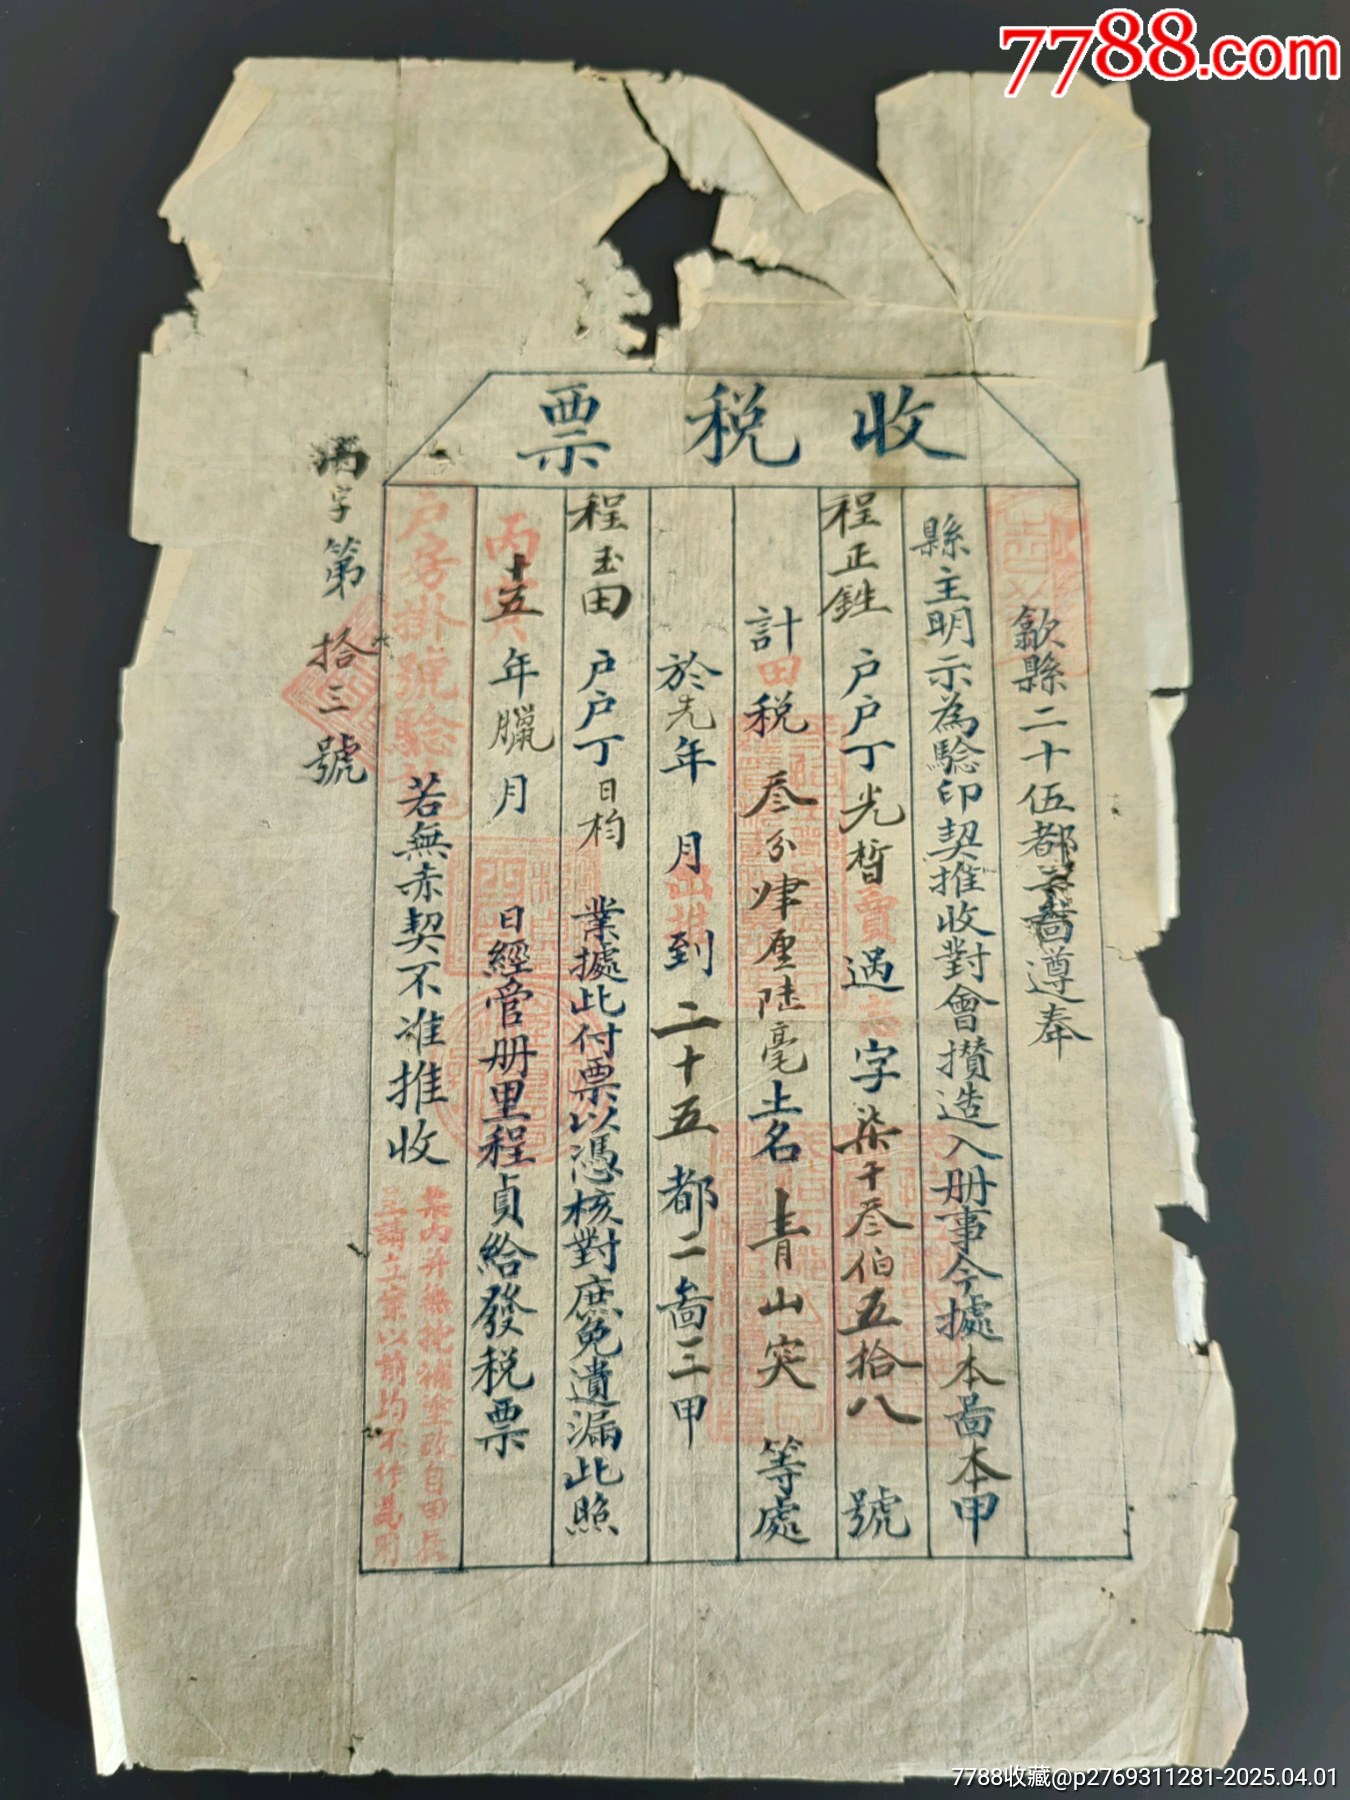 7788.com
收税票
歙縣二十伍都二啚遵奉
縣主明示為驗印契推收對會攢造入册事今據本啚本甲
程正銈户户丁光晢賣過 字柒千叁伯五拾八號
計田税叁分肆厘陸毫土名青山突等處
於先年 月出推到二十五都二啚三甲
程玉田户户丁日杓 業據此付票以憑核對庶免遺漏此照
丙寅十五年臘月 日經管册里程貞給發税票
户房掛號驗訖若無赤契不准推收
票内并無挖補塗改自田長
主請立業以前均不作為用
字第拾三號
7788收藏@p2769311281-2025.04.01